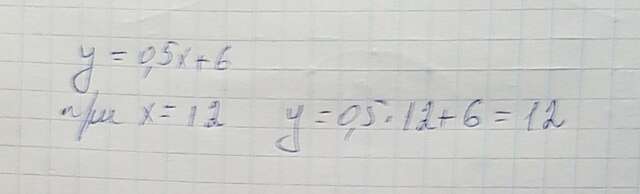 y = 0,5x + 6
при x = 12 y = 0,5 · 12 + 6 = 12